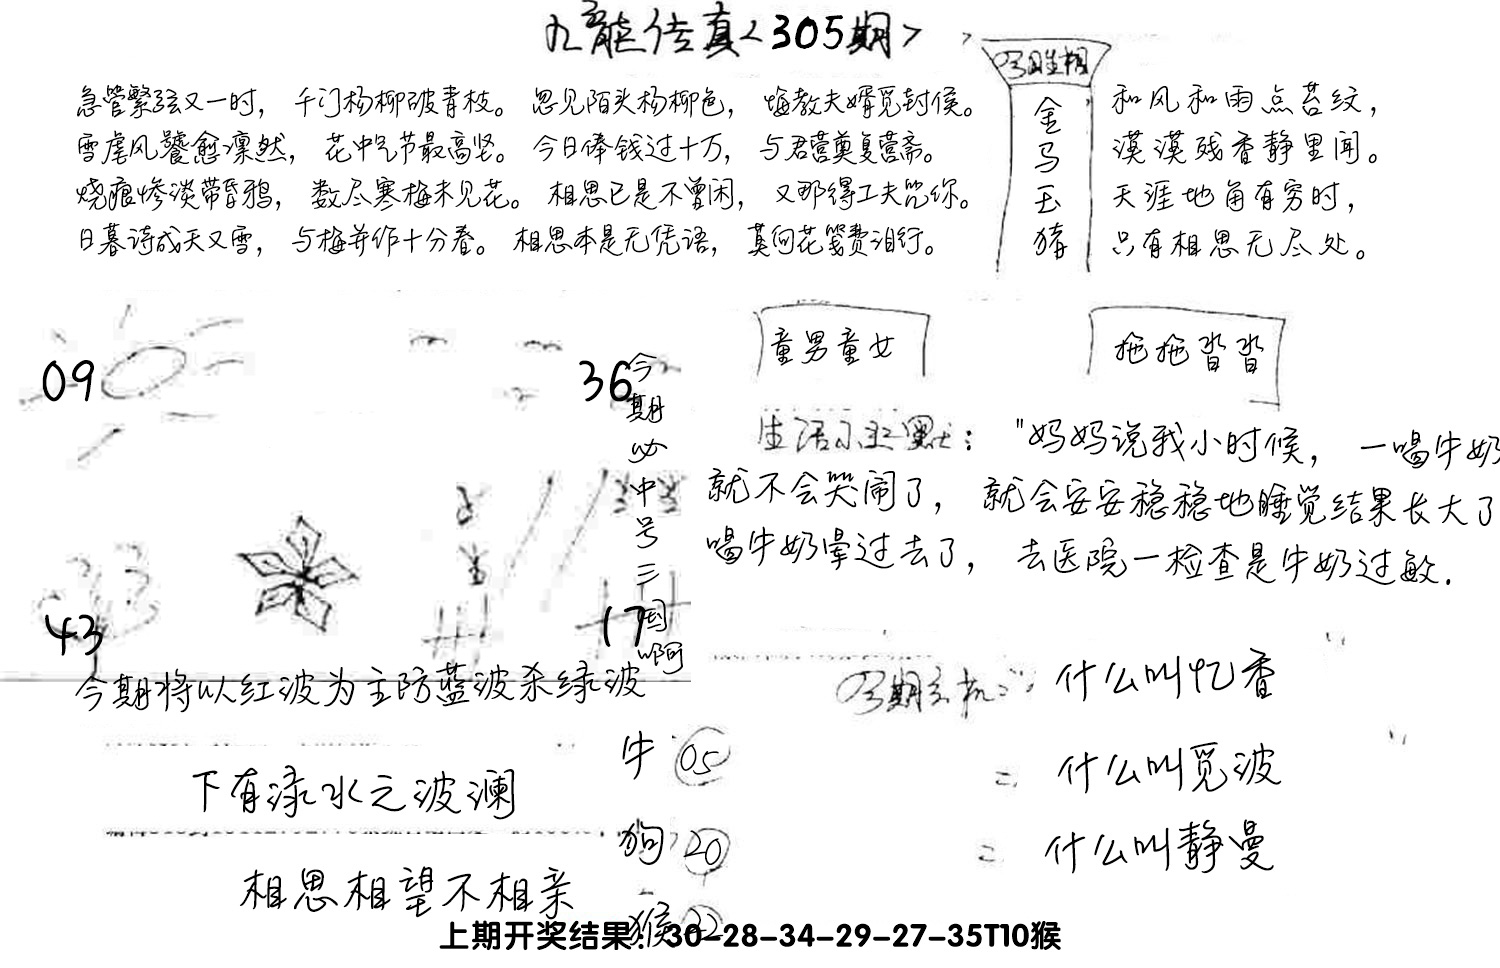 九龙传真<305期>
急管繁弦又一时，千门杨柳破青枝。忽见陌头杨柳色，悔教夫婿觅封侯。
雪虐风饕愈凛然，花中气节最高坚。今日俸钱过十万，与君营奠复营斋。
烧痕惨淡带昏鸦，数尽寒梅未见花。相思已是不曾闲，又那得工夫咒你。
日暮诗成天又雪，与梅并作十分春。相思本是无凭语，莫向花笺费泪行。
今期生相
金
马
玉
猪
和风和雨点苔纹，
漠漠残香静里闻。
天涯地角有穷时，
只有相思无尽处。
09
36
43
17
今
期
必
中
号
三
国
啊
童男童女
拖拖沓沓
生活幽默："妈妈说我小时候，一喝牛奶
就不会哭闹了，就会安安稳稳地睡觉结果长大了
喝牛奶晕过去了，去医院一检查是牛奶过敏.
今期将以红波为主防蓝波杀绿波
下有渌水之波澜
相思相望不相亲
牛 05
狗 20
猴 22
今期玄机: 什么叫忆香
= 什么叫觅波
= 什么叫静曼
上期开奖结果：30-28-34-29-27-35T10猴